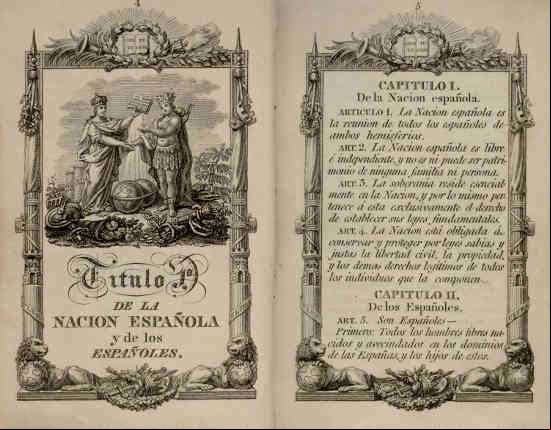 4
Titulo 1º
DE LA
NACION ESPAÑOLA
y de los
ESPAÑOLES.
5
CAPITULO I.
De la Nacion española.
ARTICULO 1. La Nacion española es
la reunion de todos los españoles de
ambos hemisferios.
ART. 2. La Nacion española es libre
é independiente, y no es ni puede ser patri-
monio de ninguna familia ni persona.
ART. 3. La soberania reside esencial-
mente en la Nacion, y por lo mismo per-
tenece á esta exclusivamente el derecho
de establecer sus leyes fundamentales.
ART. 4. La Nacion está obligada á
conservar y proteger por leyes sabias y
justas la libertad civil, la propiedad,
y los demas derechos legítimos de todos
los individuos que la componen.
CAPITULO II.
De los Españoles.
ART. 5. Son Españoles—
Primero: Todos los hombres libres na-
cidos y avecindados en los dominios
de las Españas, y los hijos de estos.